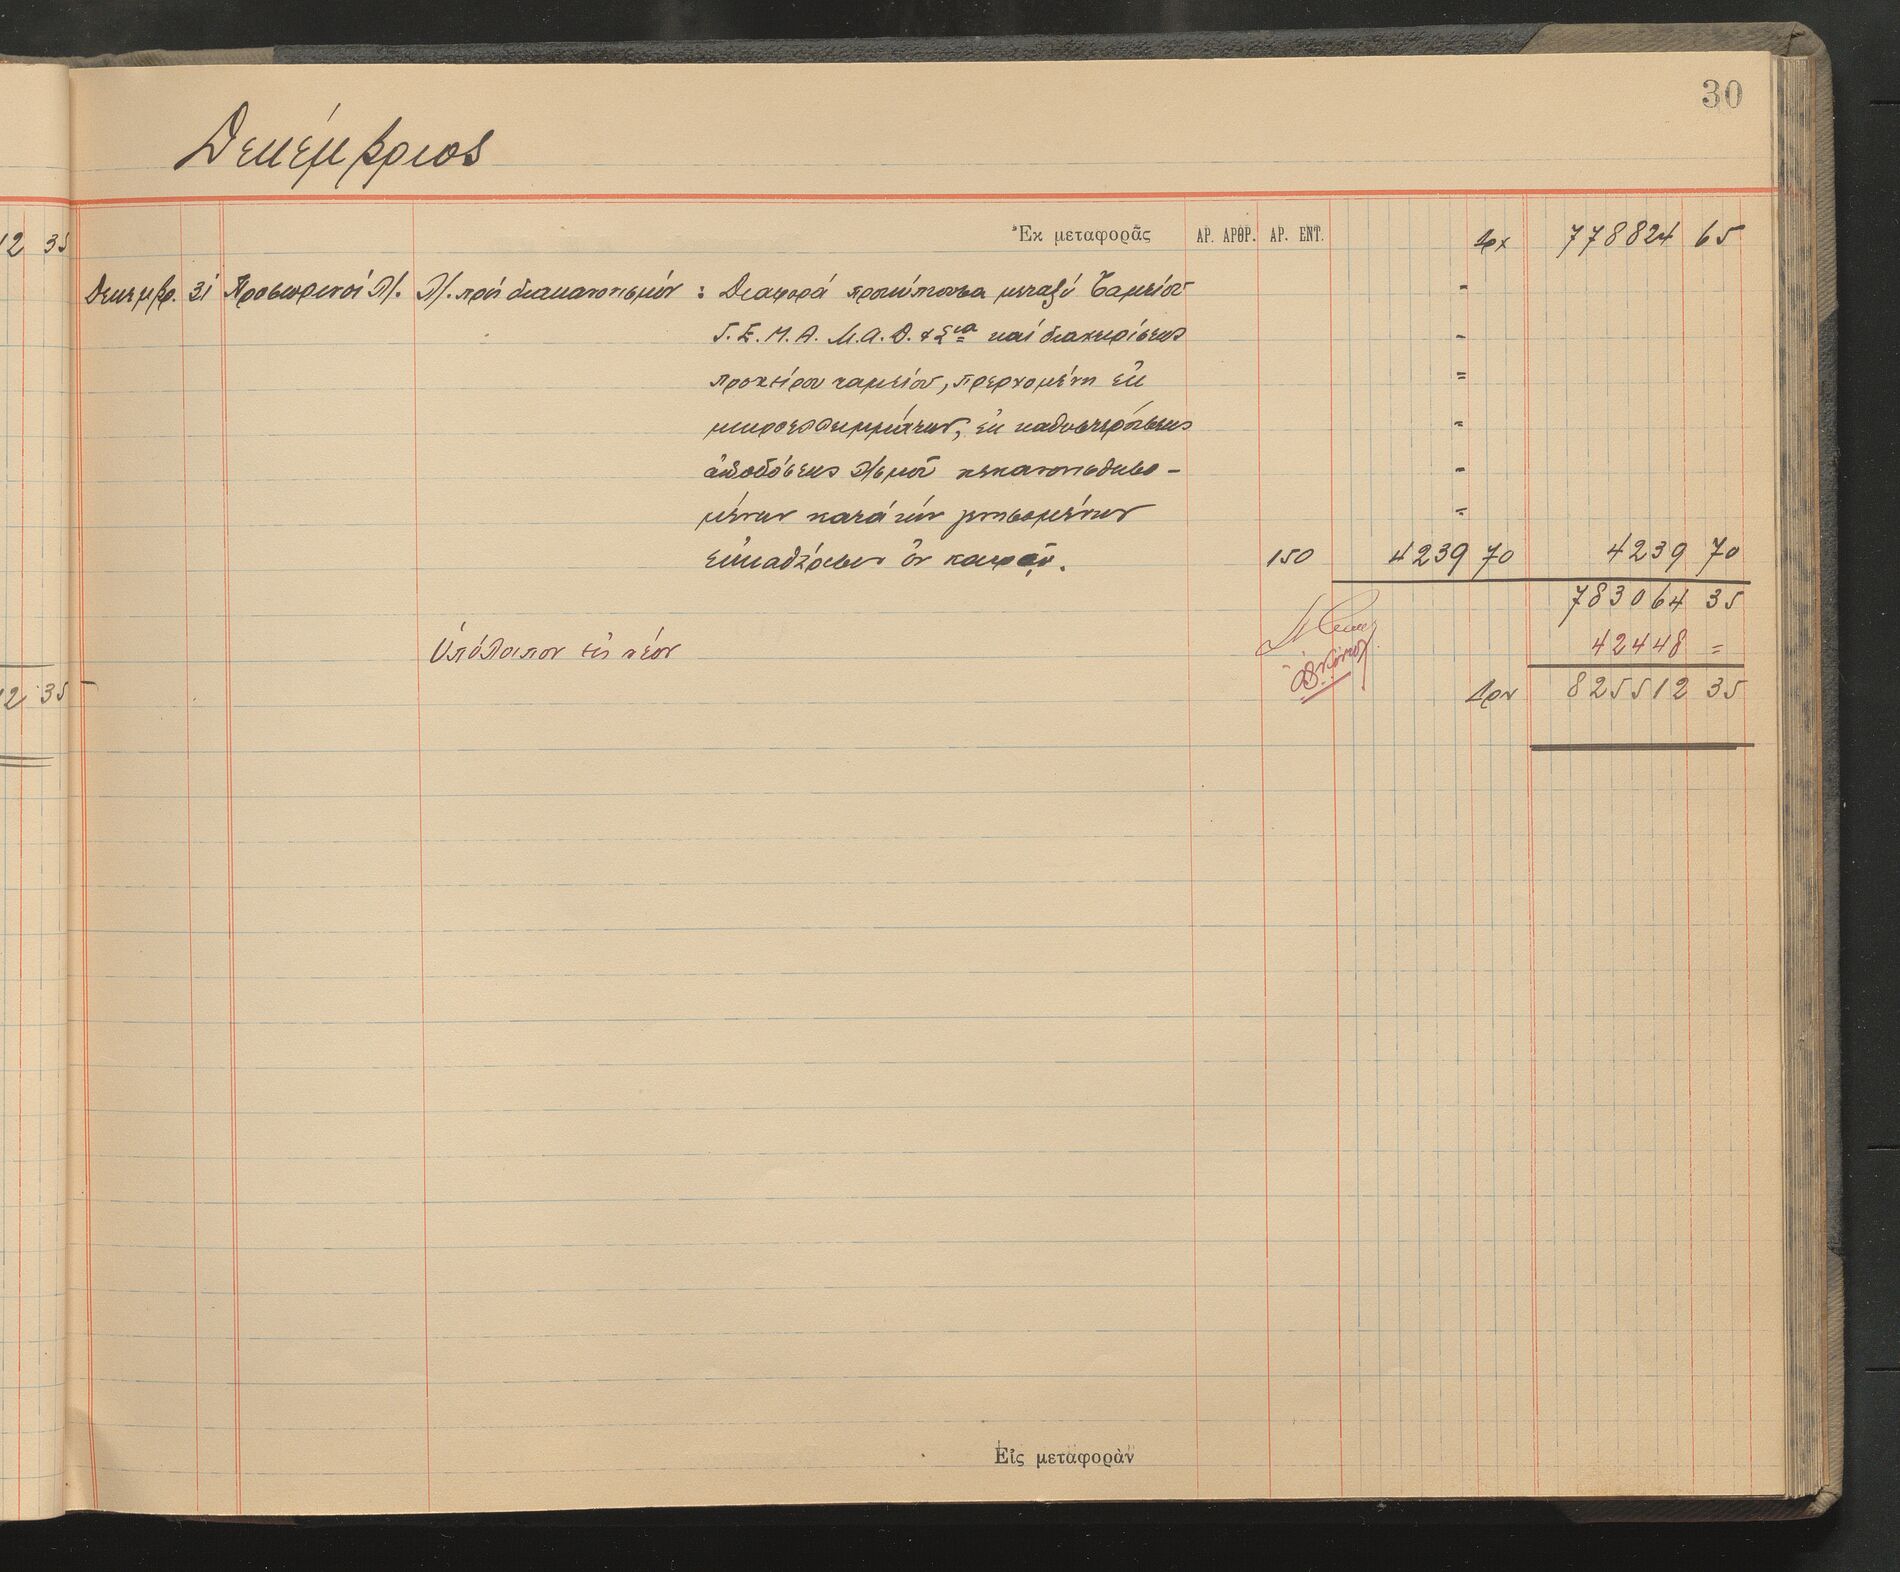 30
Δεκέμβριος
Ἐκ μεταφορᾶς ΑΡ. ΑΡΘΡ. ΑΡ. ΕΝΤ. Δρχ 778824 65
12 35
Δεκεμβρ. 31 Προσωρινοί Λ/. Λ/. πρός διακανονισμόν : Διαφορά προκύπτουσα μεταξύ Ταμείου -
Γ.Ε.Μ.Α. Μ.Α.Δ. & Σια καί διαχειρίσεως -
προχείρου ταμείου, προερχομένη ἐκ =
μικροελλειμμάτων, ἐκ καθυστερήσεως -
ἀποδόσεως Λ/σμοῦ κεκανονισθησο- -
μένων κατά τήν γενησομένην =
ἐκκαθάρισιν ἐν καιρῷ. 150 4239 70 4239 70
783064 35
Ὑπόλοιπον εἰς νέον 42448 =
12 35 Δρχ 825512 35
Εἰς μεταφορὰν